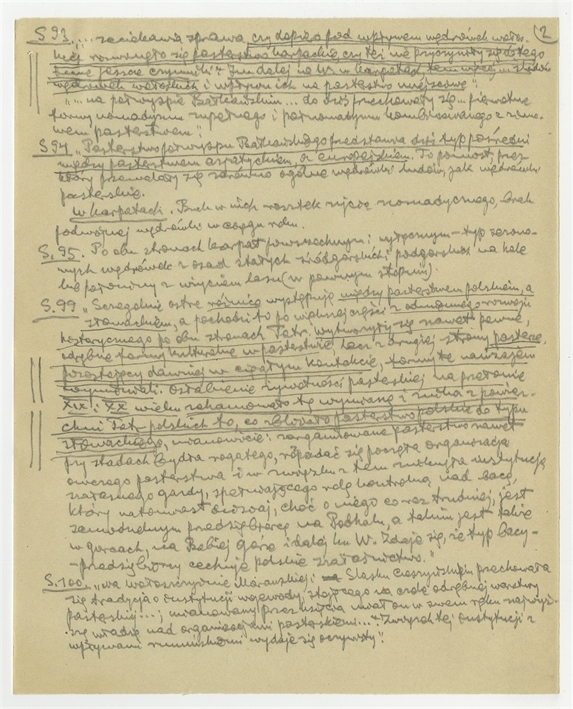 S 93 „... zaciekawia sprawa, czy dopiero pod wpływem wędrówek wołos-
kiej rozwinęło się pasterstwo karpackie, czy też
inne jeszcze czynniki." Im dalej na W. w Karpatach, tem więcej śladów
wędrówek wołoskich i wpływu ich na pasterstwo miejscowe."
„... na półwyspie Bałkańskim... do dziś przechowały się pierwotne
formy nomadyzmu zupełnego i półnomadyzmu kombinowanego z zimo-
wem pasterstwem."
S 94 „Pasterstwo półwyspu Bałkańskiego przedstawia dziś typ pośredni
między pasterstwem azjatyckiem, a europejskiem. To pomost, przez
który przewalały się zarówno ogólne wędrówki ludów, jak wędrówki
pasterskie.
W Karpatach. Brak w nich resztek życia nomadycznego, brak
podwójnej wędrówki w ciągu roku.
S. 95. Po obu stronach Karpat powszechnym i wyłącznym – typ sezono-
wych wędrówek z osad stałych śródgórskich i podgórskich na hale
lub polaniny z wycięciem lasu (w pewnym stopniu).
S. 99 „Szczególnie ostre różnice występują między pasterstwem polskiem, a
słowackiem, a pochodzi to po większej części z odmiennego rozwoju
historycznego po obu stronach Tatr. Wytworzyły się nawet pewne,
odrębne formy kulturalne w pasterstwie, lecz z drugiej strony pasterze,
pozostający dawniej w ciągłym kontakcie, formy te nawzajem
wymieniali. Osłabienie żywotności pasterskiej na przełomie
XIX i XX wieku zahamowało tę wymianę z
Tatr polskich to, co zbliżało pasterstwo polskie do typu
słowackiego, mianowicie: zorganizowane pasterstwo nawet
przy stadach bydła rogatego, rozpadać się poczęła organizacja
owczego pasterstwa i w związku z tem zniknęła instytucja
szałaśnego gazdy, spełniającego rolę kontrolną nad bacą,
który natomiast dzisiaj, choć o niego coraz trudniej, jest
samodzielnym przedsiębiorcą na Podhalu, a takim jest także
w Gorcach, na Babiej Górze i dalej ku W. Zdaje się, że typ bacy-
-przedsiębiorcy cechuje polskie szałaśnictwo."
S. 100 „na Wołoszczyźnie Morawskiej i Śląsku Cieszyńskim przechowała
się tradycja o instytucji wojewody, stojącego na czele odrębnej warstwy
pasterskiej...; mianowany przez księcia miał on w swem ręku najwyż-
szą władzę nad organizacjami pasterskiemi...". Związek tej instytucji z
wpływami rumuńskiemi wydaje się oczywisty".